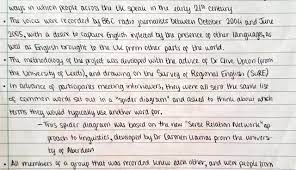 ways in which people across the UK speak in the early 21st century
• The voices were recorded by BBC radio journalists between October 2004 and June
2005, with a desire to capture English inflected by the presence of other languages, as
well as English brought to the UK from other parts of the world.
• The methodology of the project was developed with the advice of Dr Clive Upton (from
the University of Leeds), and drawing on the Survey of Regional English (SuRE)
• In advance of participants meeting interviewers, they were all sent the same list
of common words set out in a "spider diagram" and asked to think about which
terms they would typically use another word for.
- This spider diagram was based on the new "Sense Relation Network" ap
proach to linguistics, developed by Dr Carmen Llamas from the univers-
ity of Aberdeen
• All members of a group that was recorded knew each other, and were people from